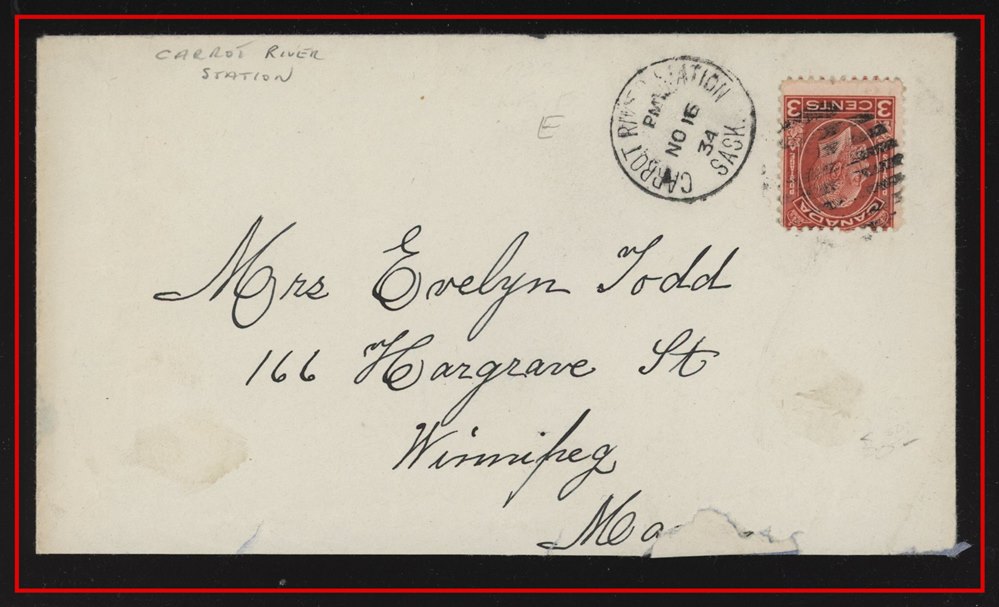 CARROT RIVER
STATION
E
CARROT RIVER STATION
PM
NO 16
34
SASK.
3 CENTS 3
CANADA
Mrs Evelyn Todd
166 Hargrave St
Winnipeg
Ma